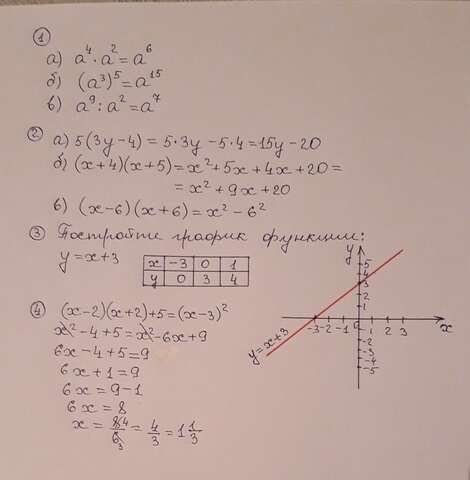 1
а) a⁴ · a² = a⁶
б) (a³)⁵ = a¹⁵
в) a⁹ : a² = a⁷
2 а) 5(3y-4) = 5·3y - 5·4 = 15y - 20
б) (x+4)(x+5) = x² + 5x + 4x + 20 =
= x² + 9x + 20
в) (x-6)(x+6) = x² - 6²
3 Постройте график функции:
y = x+3
x -3 0 1
y 0 3 4
4 (x-2)(x+2)+5 = (x-3)²
x² - 4 + 5 = x² - 6x + 9
6x - 4 + 5 = 9
6x + 1 = 9
6x = 9 - 1
6x = 8
x = 8 4/6 3 = 4/3 = 1 1/3
y
5
4
3
2
1
-3 -2 -1 0 1 2 3 x
-2
-3
-4
-5
y = x+3